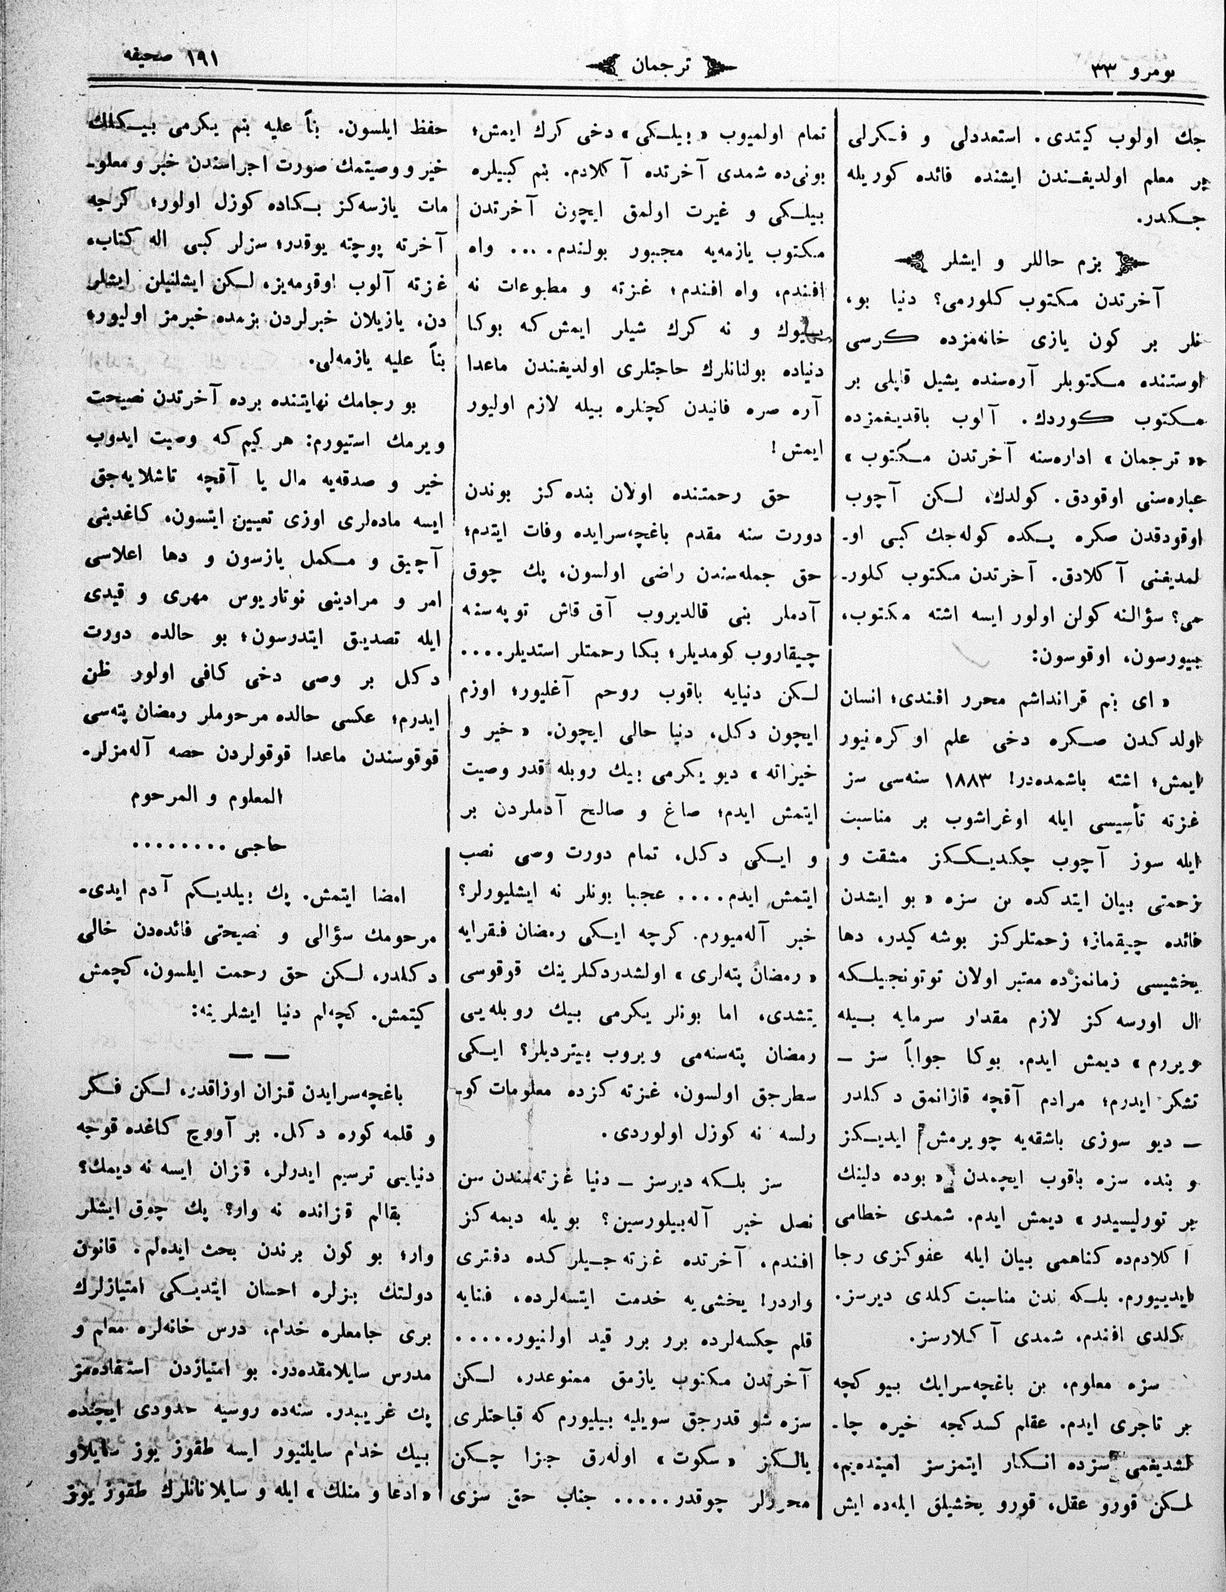 نومرو ٣٣
ترجمان
١٩١ صحیفه
جك اولوب كیتدی. استعددلی و فـكرلی
بر معلم اولدیغـندن ایشنده فائده كوریله
جـكدر.
بزم حاللر و ایشلر
آخرتدن مكتوب كلورمی؟ دنیا بو،
نلر بر كون یازی خانه‌مزده كرسی
اوستنده مـكتوبلر آره‌سنده یشیل قاپلی بر
مـكتوب كوردك. آلوب باقدیغمزده
«« ترجمان » اداره‌سنه آخرتدن مـكتوب »
عباره‌سنی اوقودق. كولدك، لـكن آچوب
اوقودقدن صكره پـكده كوله‌جك كبی او-
لمدیغنی آكلادق. آخرتدن مكتوب كلور-
می؟ سؤالنه كولن اولور ایسه اشته مكتوب،
بیورسون، اوقوسون:
« ای بنم قرانداشم محرر افندی؛ انسان
اولدكدن صـكره دخی علم اوكره‌نیور
ایمش؛ اشته باشمده‌در! ١٨٨٣ سنه‌سی سز
غزته تأسیسی ایله اوغراشوب بر مناسبت
ایله سوز آچوب چكدیـكـكز مشقت و
زحمتی بیان ایتدكده بن سزه « بو ایشدن
فائده چیقماز؛ زحمتلركز بوشه كیدر، دها
یخشیسی زمانمزده معتبر اولان توتونجیلـكه
ال اورسه‌كز لازم مقدار سرمایه بـیله
ویررم » دیمش ایدم. بوكا جواباً سز —
تشكر ایدرم؛ مرادم آقچه قازانمق دكلدر
— دیو سوزی باشقه‌یه چویرمش ایدیـكز
و بنده سزه باقوب ایچمدن « بوده دلینك
بر تورلیسیدر » دیمش ایدم. شمدی خطامی
آكلادم‌ده كناهمی بیان ایله عفوكزی رجا
ایدییورم. بلـكه ندن مناسبت كلدی دیرسز.
كلدی افندم، شمدی آكلارسز.
سزه معلوم، بن باغچه‌سرایك بیوكچه
بر تاجری ایدم. عقلم كسدكجه خیره چا-
لشدیغمی سزده انـكار ایتمزسز امینده‌یم،
لـكن قورو عقل، قورو یخشیلق ایله‌ده ایش
تمام اولمیوب « بیلـكی » دخی كرك ایمش؛
بونی‌ده شمدی آخرتده آكلادم. بنم كبیلره
بیلـكی و غیرت اولمق ایچون آخرتدن
مكتوب یازمه‌یه مجبور بولندم.... واه
افندم، واه افندم؛ غزته و مطبوعات نه
بیوك و نه كرك شیلر ایمش كه بوكا
دنیاده بولنانلرك حاجتلری اولدیغندن ماعدا
آره صره فانیدن كچنلره بیله لازم اولیور
ایمش!
حق رحمتنده اولان بنده‌كز بوندن
دورت سنه مقدم باغچه‌سرایده وفات ایتدم؛
حق جمله‌سندن راضی اولسون، پك چوق
آدملر بنی قالدیروب آق قاش توپه‌سنه
چیقاروب كومدیلر؛ بكا رحمتلر استدیلر....
لـكن دنیایه باقوب روحم آغلیور؛ اوزم
ایچون دكل، دنیا حالی ایچون. « خیر و
خیراته » دیو یكرمی بیك روبله قدر وصیت
ایتمش ایدم؛ صاغ و صالح آدملردن بر
و ایـكی دكل، تمام دورت وصی نصب
ایتمش ایدم.... عجبا بونلر نه ایشلیورلر؟
خبر آله‌میورم. كرچه ایـكی رمضان فـقرایه
« رمضان پته‌لری » اولشدردكلرینك قوقوسی
یتشدی، اما بونلر یكرمی بیك روبله‌یی
رمضان پته‌سنه‌می ویروب بیتردیلر؟ ایـكی
سطرجق اولسون، غزته‌كزده معلومات كو-
رلسه نه كوزل اولوردی.
سز بلـكه دیرسز — دنیا غزته‌سندن سن
نصل خبر آله‌بیلورسین؟ بویله دیمه‌كز
افندم. آخرتده غزته‌جـیلركده دفتری
واردر! یخشی‌یه خدمت ایتسه‌لرده، فنایه
قلم چكسه‌لرده برر برر قید اولنیور.....
آخرتدن مكتوب یازمق ممنوعدر، لـكن
سزه شو قدرجق سویلیه بیلیورم كه قباحتلری
یالـكز « سكوت » اوله‌رق جزا چـكن
محررلر چوقدر..... جناب حق سزی
حفظ ایلسون. بناً علیه بنم یكرمی بیـكلك
خیر و وصیتمك صورت اجراسندن خبر و معلو-
مات یازسه‌كز بـكاده كوزل اولور؛ كرچه
آخرته پوچته یوقدر؛ سزلر كبی اله كتاب،
غزته آلوب اوقومه‌یز، لـكن ایشلنیلن ایشلر
دن، یازیلان خبرلردن بزمده خبرمز اولیور،
بناً علیه یازمه‌لی.
بو رجامك نهایتنده برده آخرتدن نصیحت
ویرمك استیورم: هركیم كه وصیت ایدوب
خیر و صدقه‌یه مال یا آقچه تاشلایه‌جق
ایسه ماده‌لری اوزی تعیین ایتسون، كاغدینی
آچیق و مـكمل یازسون و دها اعلاسی
امر و مرادینی نوتاریوس مهری و قیدی
ایله تصدیـق ایتدرسون؛ بو حالده دورت
دكل بر وصی دخی كافی اولور ظن
ایدرم؛ عكسی حالده مرحوملر رمضان پته‌سی
قوقوسندن ماعدا قوقولردن حصه آله‌مزلر.
المعلوم و المرحوم
حاجی ........
امضا ایتمش. پك بیلدیكم آدم ایدی.
مرحومك سؤالی و نصیحتی فائده‌دن خالی
دكلدر، لـكن حق رحمت ایلسون، كچمش
كیتمش. كچه‌لم دنیا ایشلرینه:
— —
باغچه‌سرایدن قزان اوزاقدر، لـكن فـكر
و قلمه كوره دكل. بر آووچ كاغده قوجه
دنیایی ترسیم ایدرلر، قزان ایسه نه دیمك؟
بقالم قزانده نه وار؟ پك چوق ایشلر
وار؛ بو كون برندن بحث ایده‌لم. قانون
دولتك بزلره احسان ایتدیـكی امتیازلرك
بری جامعلره خدام، درس خانه‌لره معلم و
مدرس سایلامقده‌در. بو امتیازدن استفاده‌مز
پك غریبدر. سنه‌ده روسیه حدودی ایچنده
بیـك خدام سایلنیور ایسه طقوز یوز سایلاو
« ادعا و منلك » ایله و سایلانانلرك طقوز یوز